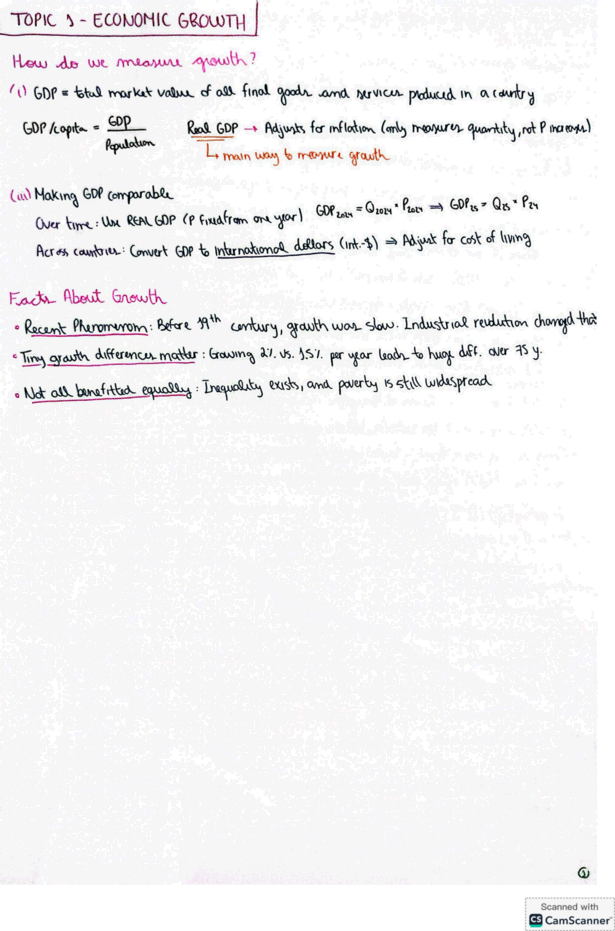 TOPIC 1 - ECONOMIC GROWTH
How do we measure growth?
(i) GDP = total market value of all final goods and services produced in a country
GDP/capita = GDP / Population
Real GDP → Adjusts for inflation (only measures quantity, not P increases)
↳ main way to measure growth
(iii) Making GDP comparable
Over time: Use REAL GDP (P fixed from one year) GDP2024 = Q2024 * P2024 ⇒ GDP25 = Q25 * P24
Across countries: Convert GDP to International dollars (int.-$) ⇒ Adjust for cost of living
Facts About Growth
• Recent Phenomenom: Before 19th century, growth was slow. Industrial revolution changed that
• Tiny growth differences matter: Growing 2% vs. 1.5% per year leads to huge diff. over 75 y.
• Not all benefitted equally: Inequality exists, and poverty is still widespread
1
Scanned with
CS CamScanner